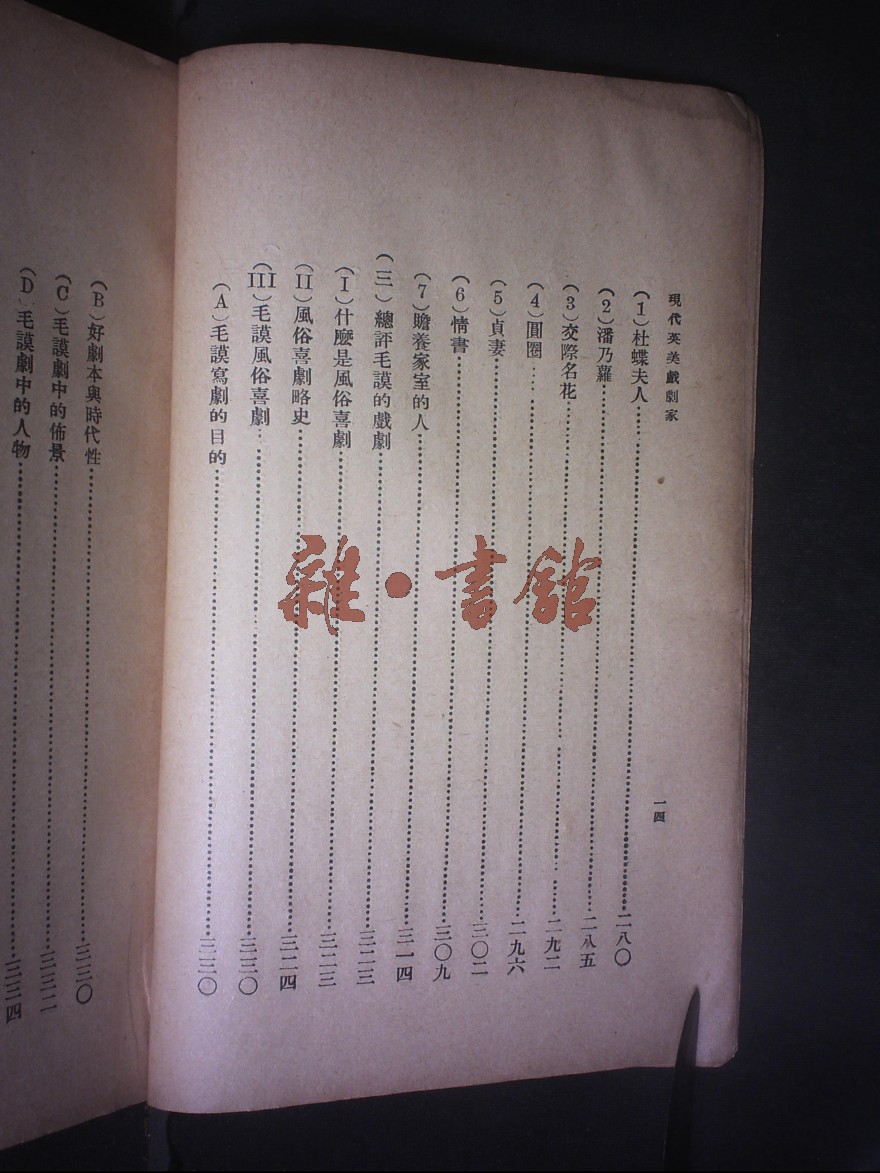 現代英美戲劇家
一四
(1)杜蝶夫人……二八〇
(2)潘乃蘿……二八五
(3)交際名花……二九二
(4)圓圈……二九六
(5)貞妻……三〇二
(6)情書……三〇九
(7)贍養家室的人……三一四
(三)總評毛謨的戲劇……三二三
(I)什麽是風俗喜劇……三二三
(II)風俗喜劇略史……三二四
(III)毛謨風俗喜劇……三三〇
(A)毛謨寫劇的目的……三三〇
(B)好劇本與時代性……三三〇
(C)毛謨劇中的佈景……三三二
(D)毛謨劇中的人物……三三四
雜·書館